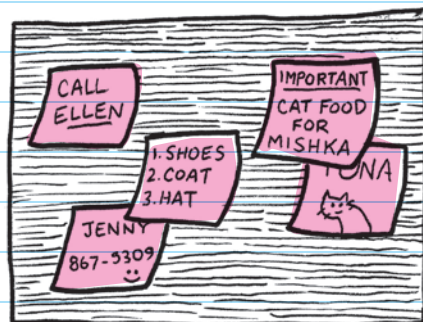 CALL
ELLEN
IMPORTANT
CAT FOOD
FOR
MISHKA
TUNA
1. SHOES
2. COAT
3. HAT
JENNY
867-5309